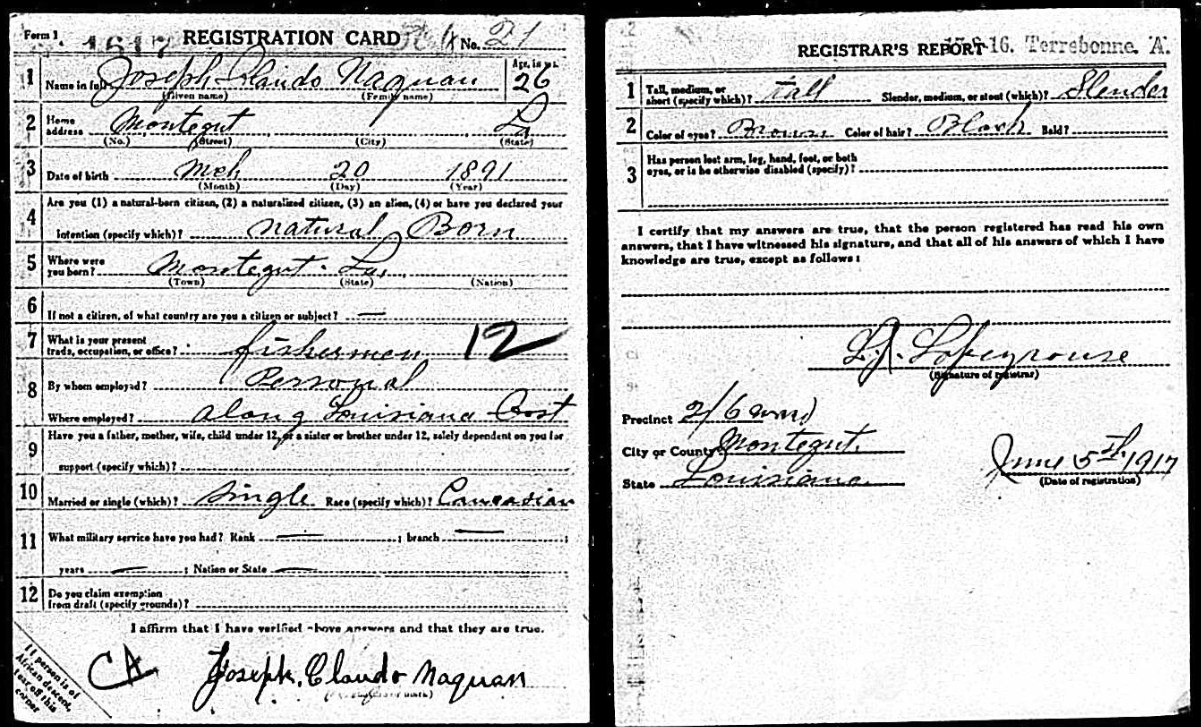 Form 1
1617
REGISTRATION CARD
No. 21
1 Name in full Joseph Claudo Naquan Age, in yrs. 26
(Given name) (Family name)
2 Home address Montegut La
(No.) (Street) (City) (State)
3 Date of birth Mch 20 1891
(Month) (Day) (Year)
4 Are you (1) a natural-born citizen, (2) a naturalized citizen, (3) an alien, (4) or have you declared your
intention (specify which)? natural Born
5 Where were you born? Montegut. La,
(Town) (State) (Nation)
6 If not a citizen, of what country are you a citizen or subject? —
7 What is your present trade, occupation, or office? fishermen 12
8 By whom employed? Personal
Where employed? along Louisiana Cost
9 Have you a father, mother, wife, child under 12, or a sister or brother under 12, solely dependent on you for
support (specify which)?
10 Married or single (which)? Single Race (specify which)? Caucasian
11 What military service have you had? Rank — ; branch — ;
years — ; Nation or State —
12 Do you claim exemption from draft (specify grounds)?
I affirm that I have verified above answers and that they are true.
CA
Joseph. Claudo Naquan
If person is of
African descent,
tear off this
corner
REGISTRAR'S REPORT 17-8-16. Terrebonne. A.
1 Tall, medium, or short (specify which)? Tall Slender, medium, or stout (which)? Slender
2 Color of eyes? Brown Color of hair? Black Bald?
3 Has person lost arm, leg, hand, foot, or both
eyes, or is he otherwise disabled (specify)?
I certify that my answers are true, that the person registered has read his own
answers, that I have witnessed his signature, and that all of his answers of which I have
knowledge are true, except as follows:
L. J. Lapeyrouse
(Signature of registrar)
Precinct 2/6 ward
City or County Montegut.
State Louisiana
June 5th 1917
(Date of registration)